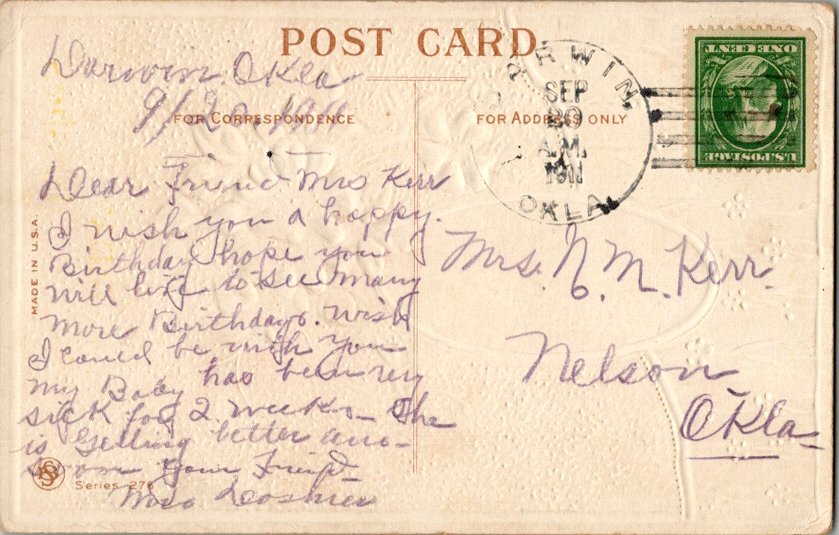 POST CARD
Darwin Okla
9/20 1911
FOR CORRESPONDENCE
FOR ADDRESS ONLY
DARWIN
SEP
20
A.M.
1911
OKLA.
ONE CENT
U.S. POSTAGE
Dear Friend Mrs Kerr
I wish you a happy
Birthday hope you
will live to see many
more Birthdays. wish
I could be with you
my Baby has been very
sick for 2 weeks She
is getting better
from your Friend
Mrs
Mrs. N. M. Kerr.
Nelson
Okla
MADE IN U.S.A.
Series 276